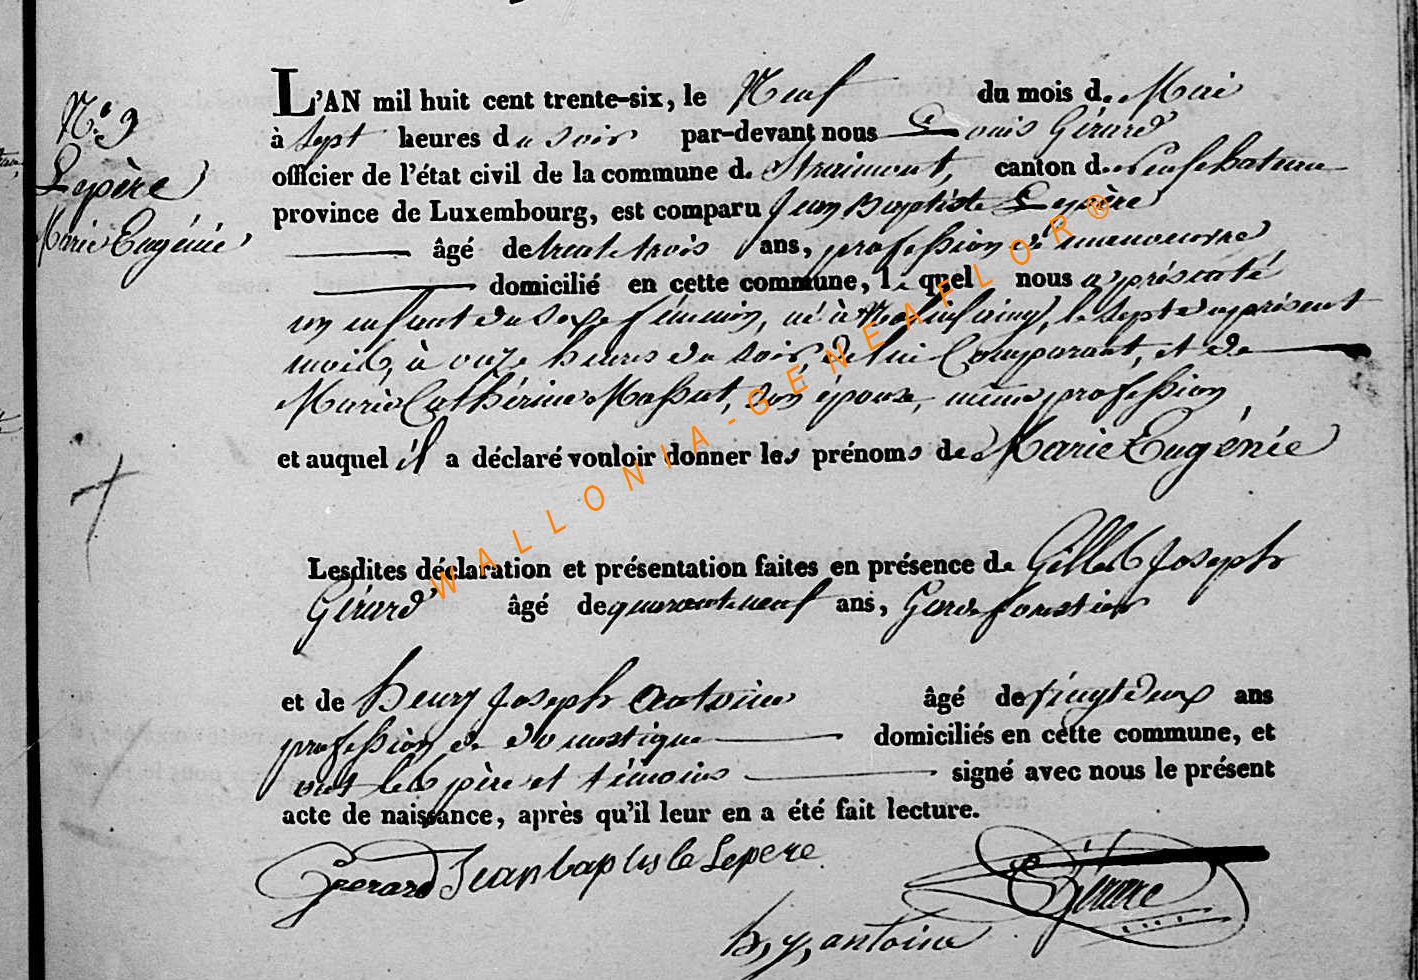 N.° 9
Lepère
Marie Eugénie
L'AN mil huit cent trente-six, le Neuf du mois de Mai
à Sept heures du soir par-devant nous Louis Gérard
officier de l'état civil de la commune de Straimont, canton de neufchateau
province de Luxembourg, est comparu Jean Baptiste Lepère
âgé de trente trois ans, profession de manoeuvre
domicilié en cette commune, lequel nous a présenté
un enfant du sexe féminin, né à, le Sept du présent
mois, à onze heures du soir, de lui Comparant, et de
Marie Catherine Massut, son épouse, même profession
et auquel il a déclaré vouloir donner les prénoms de Marie Eugénie
Lesdites déclaration et présentation faites en présence de Gilles Joseph
Gérard âgé de quarante neuf ans, Garde forestier
et de henry Joseph antoine âgé de vingt deux ans
profession de domestique domiciliés en cette commune, et
ont les père et témoins signé avec nous le présent
acte de naissance, après qu'il leur en a été fait lecture.
Gerard Jean baptiste Lepere
Gérard
h, y, antoine
WALLONIA-GENEAFLOR®